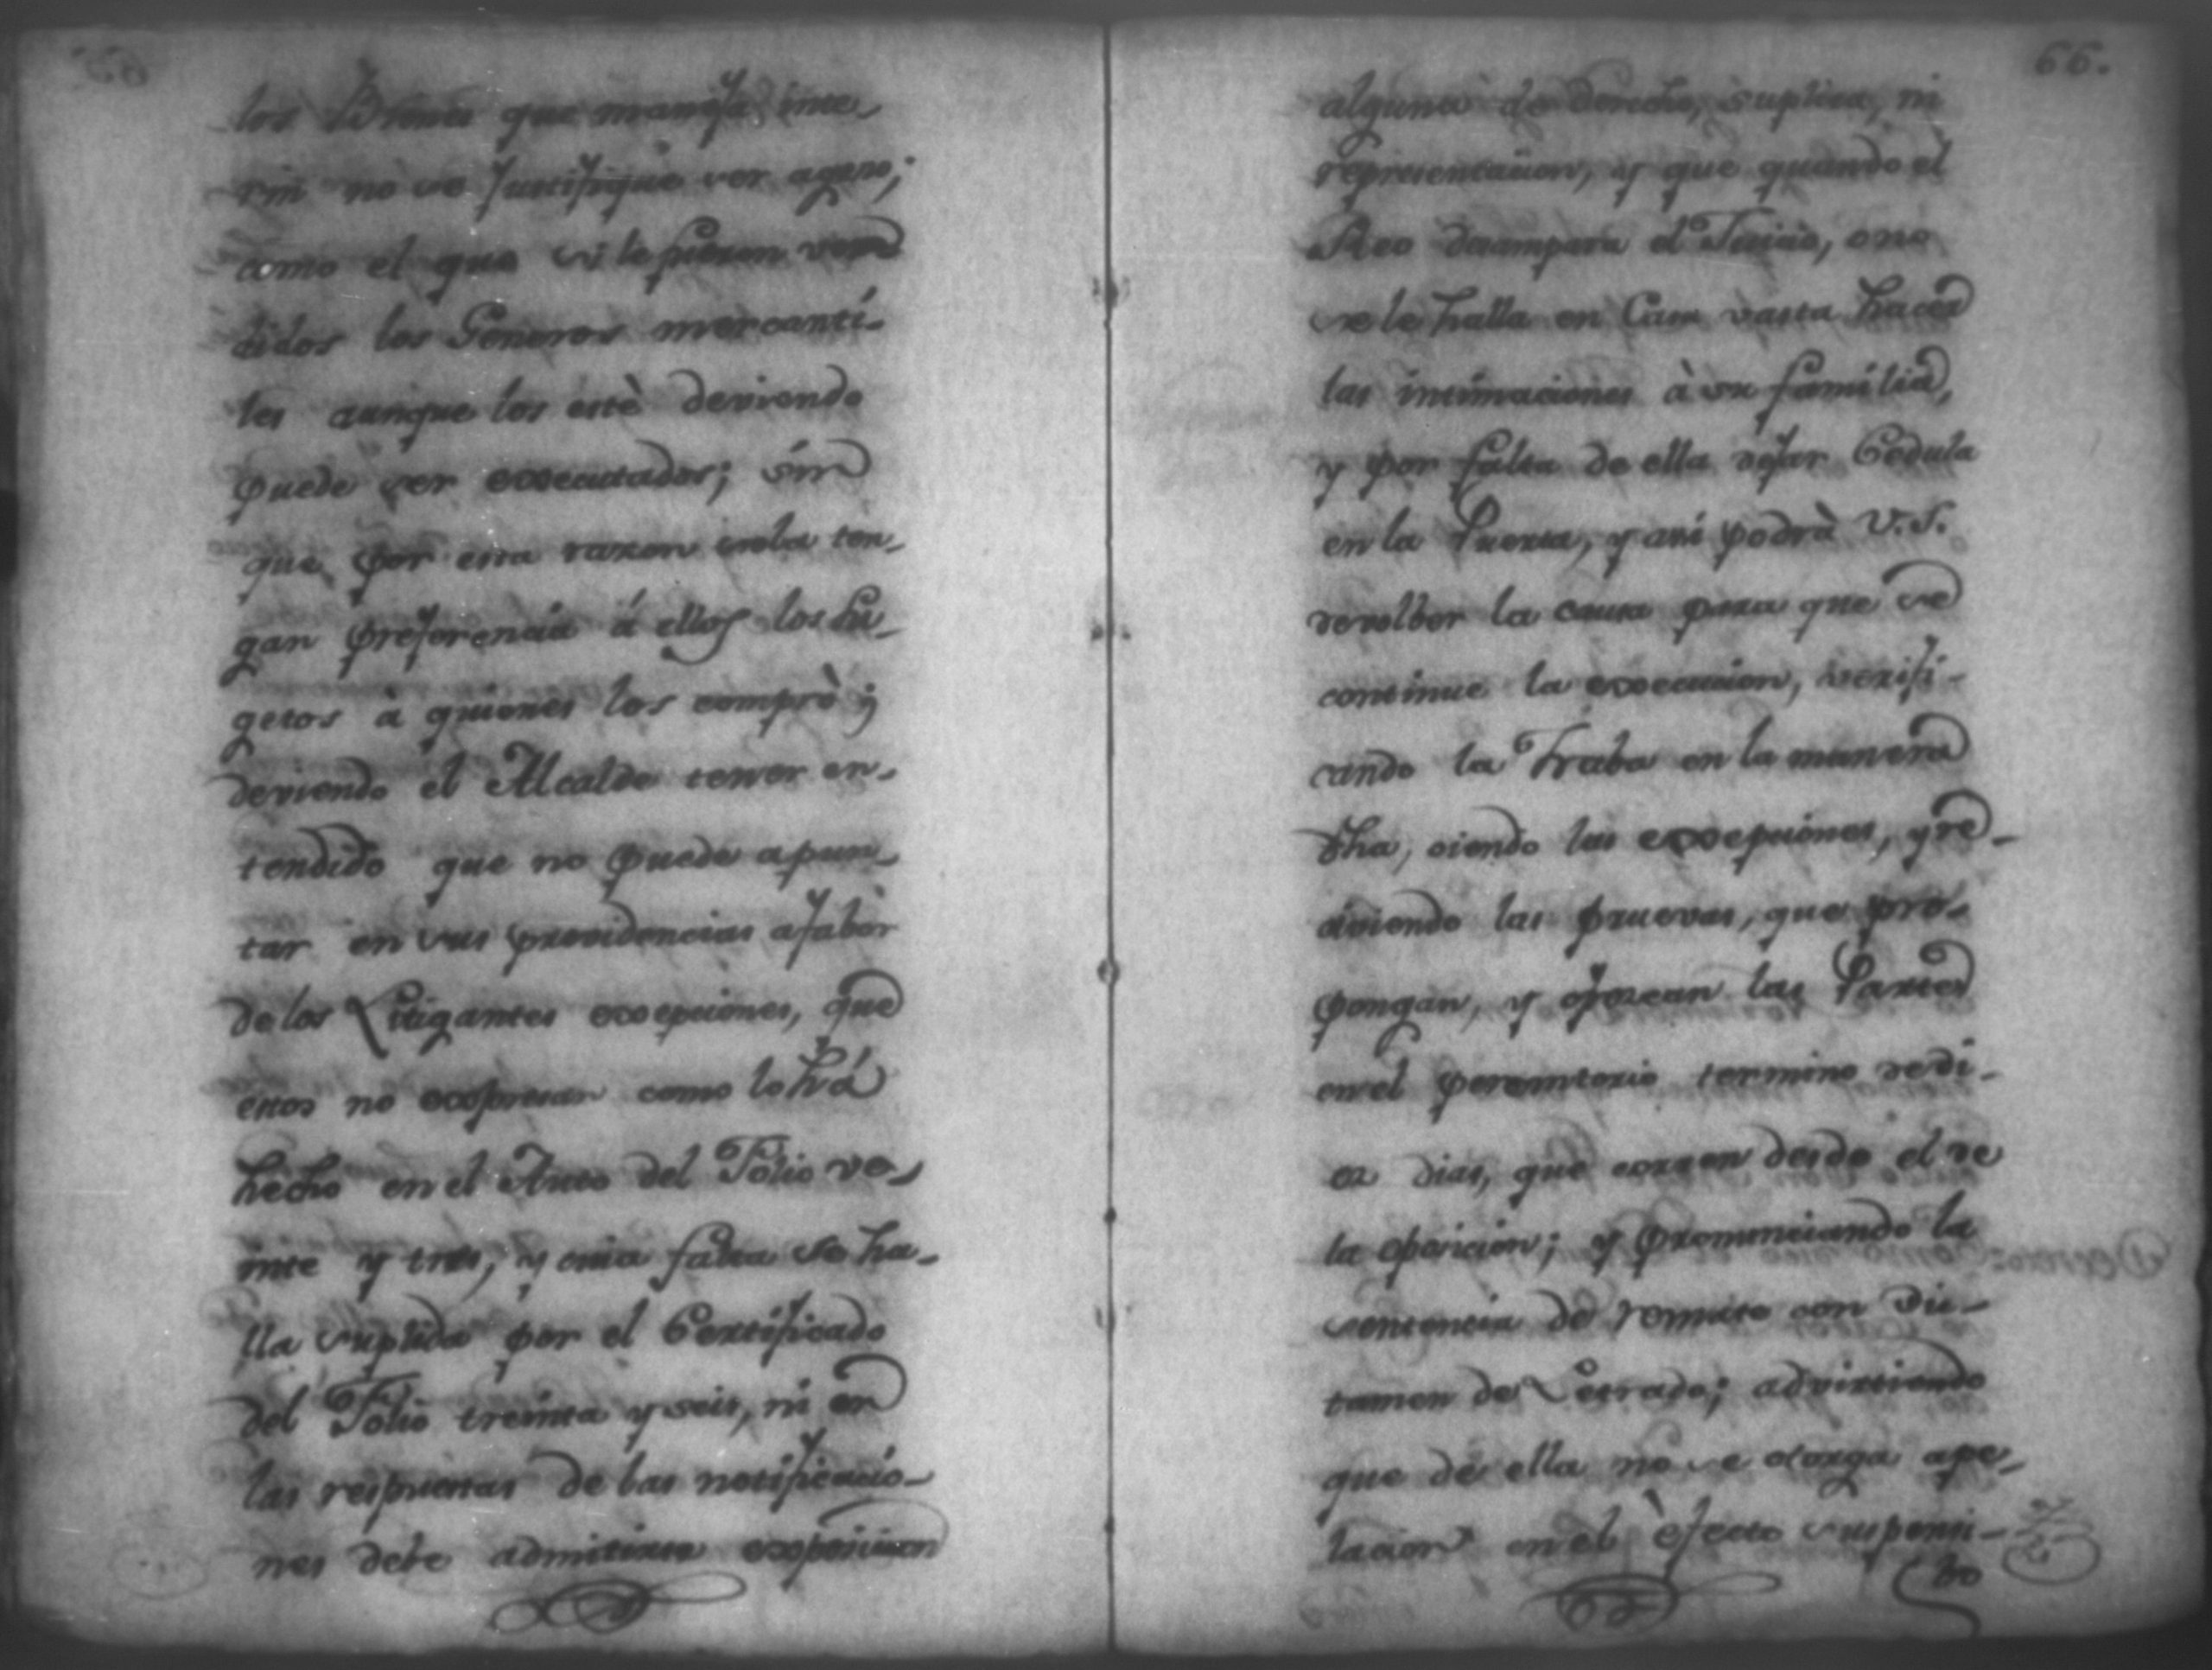 los Bienes que manifte inte-
rin no se Justifique ser ageno;
como el que si le fueron ven
didos los Generos mercanti-
les aunque los estè deviendo
puede ser executados; sin
que por esta razon sola ten-
gan preferencia á ellos los Su-
getos à quienes los comprò y
deviendo el Alcalde tener en-
tendido que no puede apun-
tar en sus providencias afabòr
de los Litigantes excepciones, que
estos no expresan como lo há
hecho en el Auto del Folio ve-
inte y tres, y cuia falta se ha-
lla suplida por el Certificado
del Folio treinta y seis, ni en
las respuestas de las notificacio-
nes debe admitirse exposicion
66.
alguna de derecho, suplica, ni
representacion, y que quando el
Reo desampara el Juicio, o no
se le halla en Casa vasta hacer
las intimaciones à su familia,
y por falta de ella dejar Cedula
en la Puerta, y asi podrà V.S.
devolber la causa para que se
continue la execucion, verifi-
cando la Traba en la manera
dha, oiendo las excepciones, y re-
civiendo las pruevas, que pro-
pongan, y ofrezcan las Partes
en el peremtorio termino de di-
ez dias, que corren desde el de
la oposicion; y pronunciando la
sentencia de remate con dic-
tamen de Letrado; advirtiendo
que de ella no se otorga ape-
lacion en el èfecto suspensi-
bo